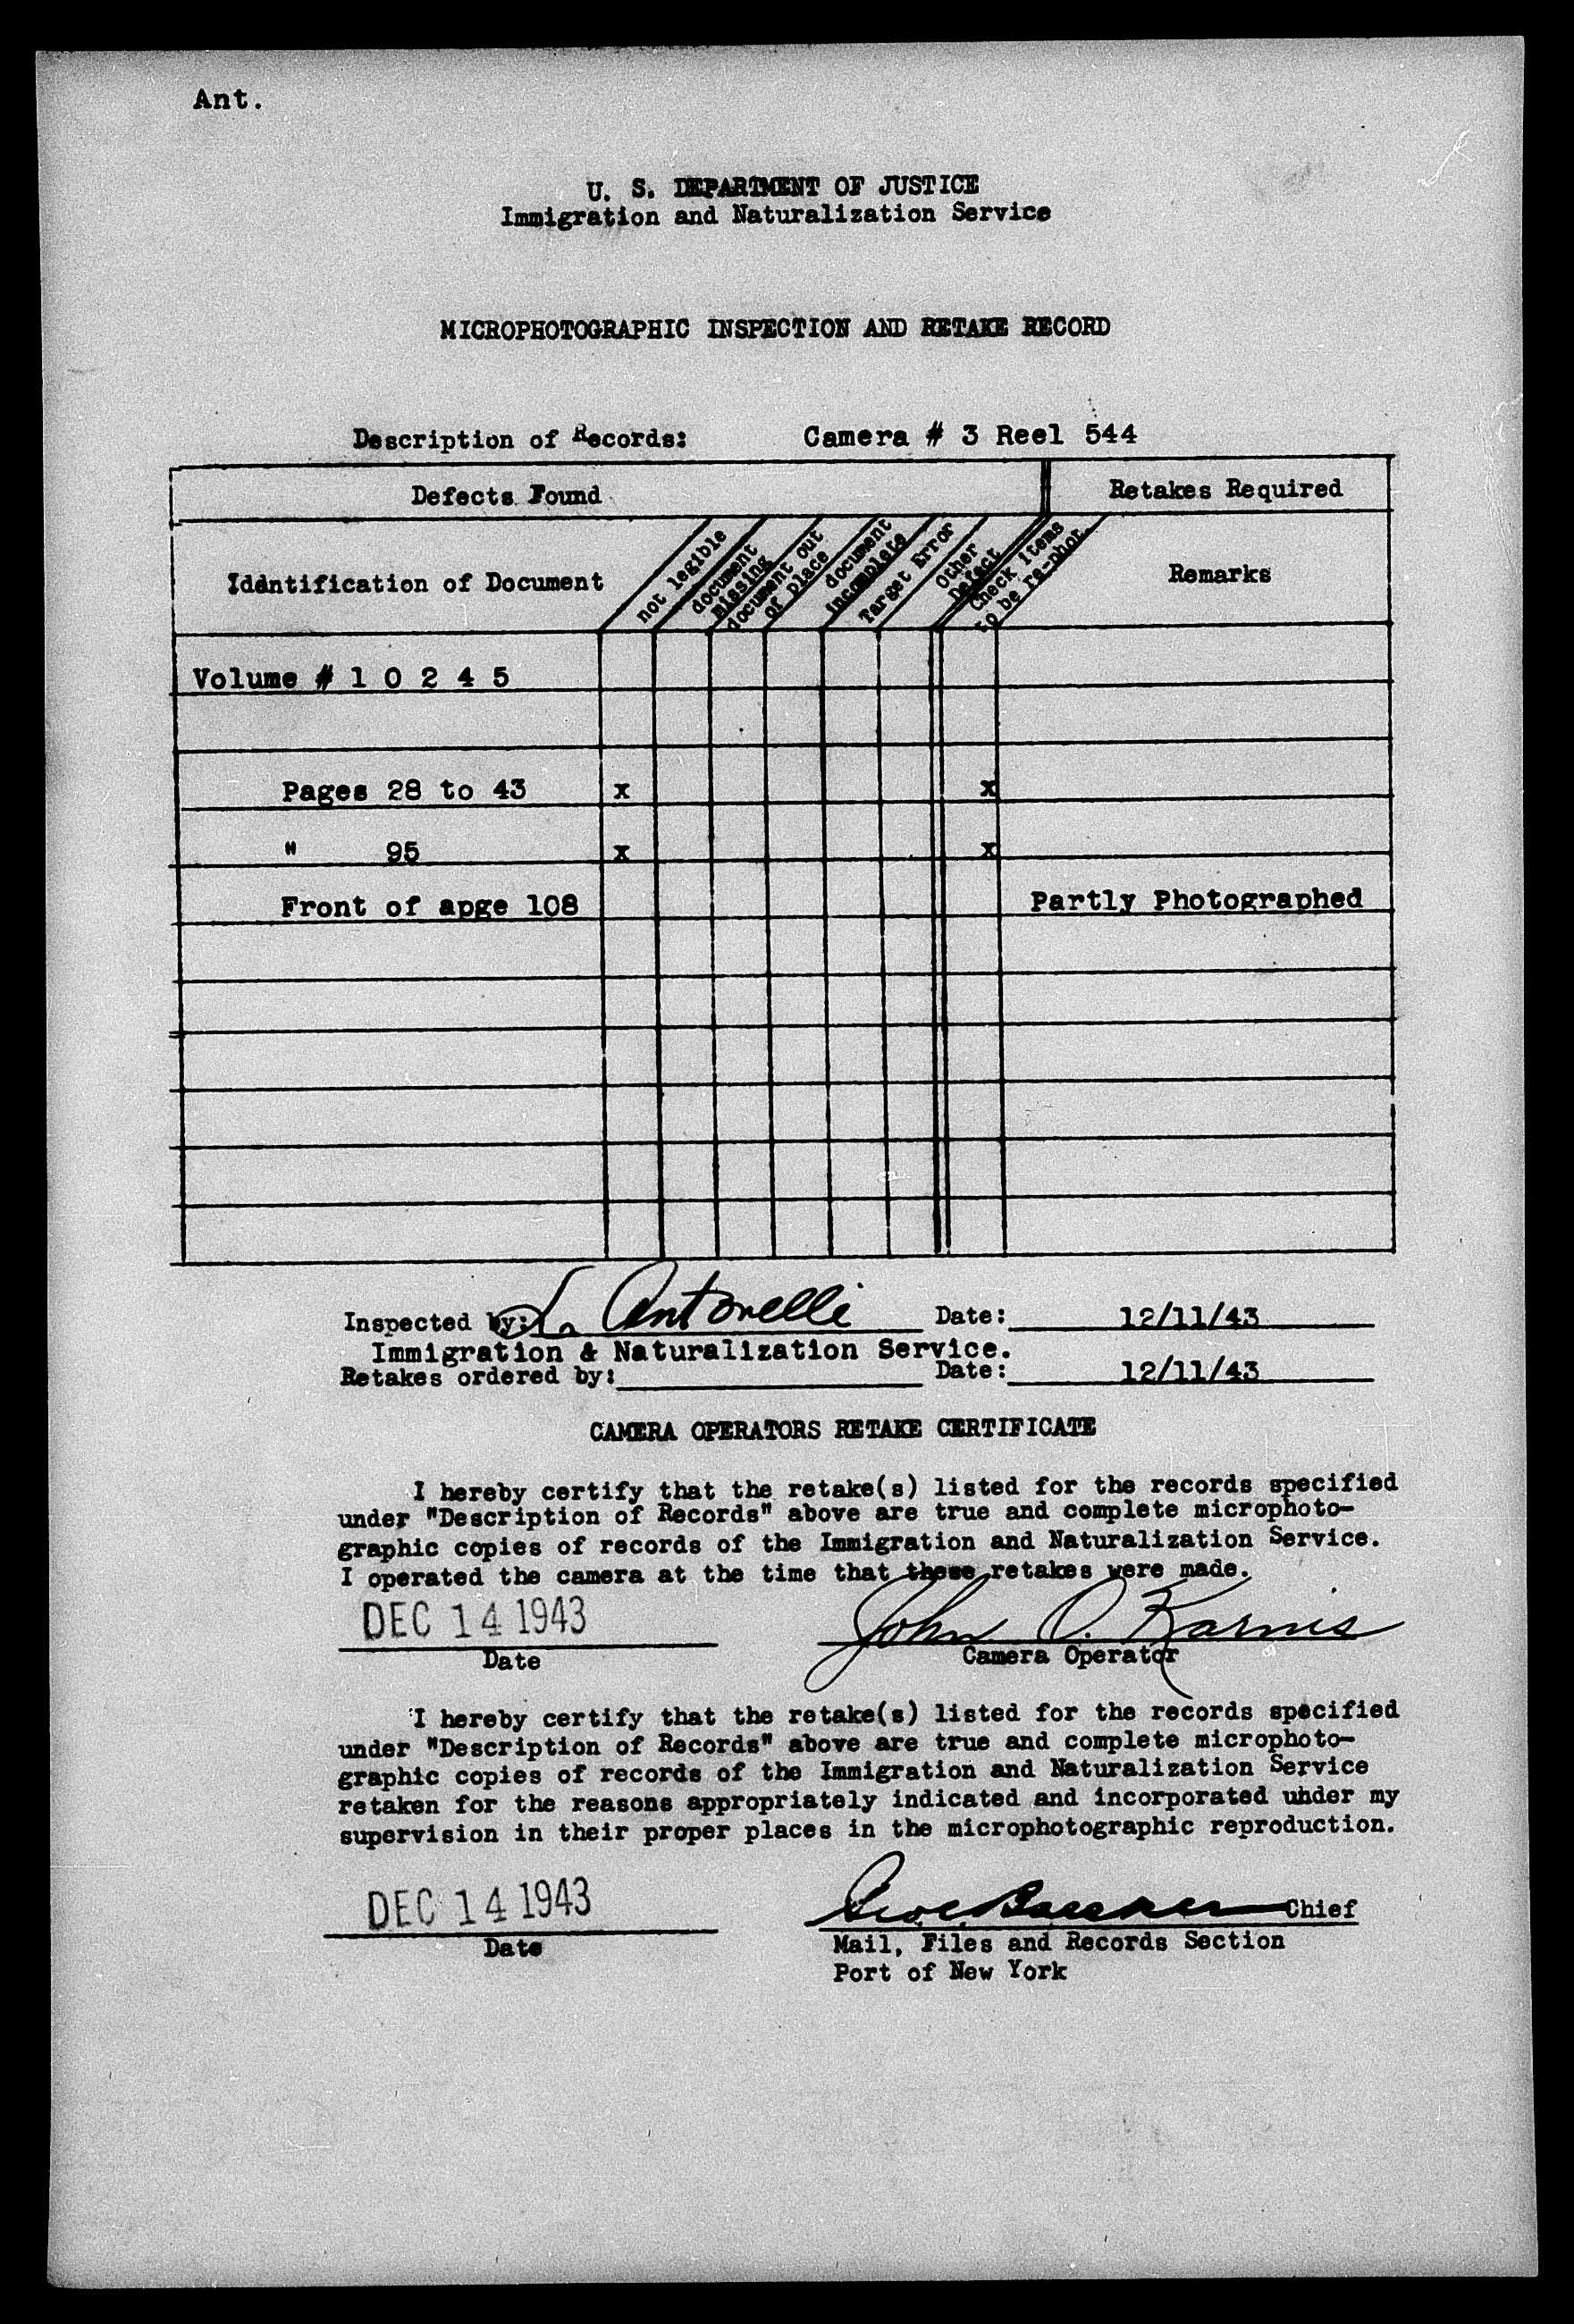 Ant.
U. S. DEPARTMENT OF JUSTICE
Immigration and Naturalization Service
MICROPHOTOGRAPHIC INSPECTION AND RETAKE RECORD
Description of Records: Camera # 3 Reel 544
Defects Found Retakes Required
Identification of Document
not legible
document
missing
document out
of place
document
incomplete
Target Error
Other
Defect
Check items
to be re-phot.
Remarks
Volume # 1 0 2 4 5
Pages 28 to 43 x x
" 95 x x
Front of apge 108 Partly Photographed
Inspected by: L. Antonelli Date: 12/11/43
Immigration & Naturalization Service.
Retakes ordered by: Date: 12/11/43
CAMERA OPERATORS RETAKE CERTIFICATE
I hereby certify that the retake(s) listed for the records specified
under "Description of Records" above are true and complete microphoto-
graphic copies of records of the Immigration and Naturalization Service.
I operated the camera at the time that these retakes were made.
DEC 14 1943 John O. Karnis
Date Camera Operator
I hereby certify that the retake(s) listed for the records specified
under "Description of Records" above are true and complete microphoto-
graphic copies of records of the Immigration and Naturalization Service
retaken for the reasons appropriately indicated and incorporated under my
supervision in their proper places in the microphotographic reproduction.
DEC 14 1943 Chief
Date Mail, Files and Records Section
Port of New York